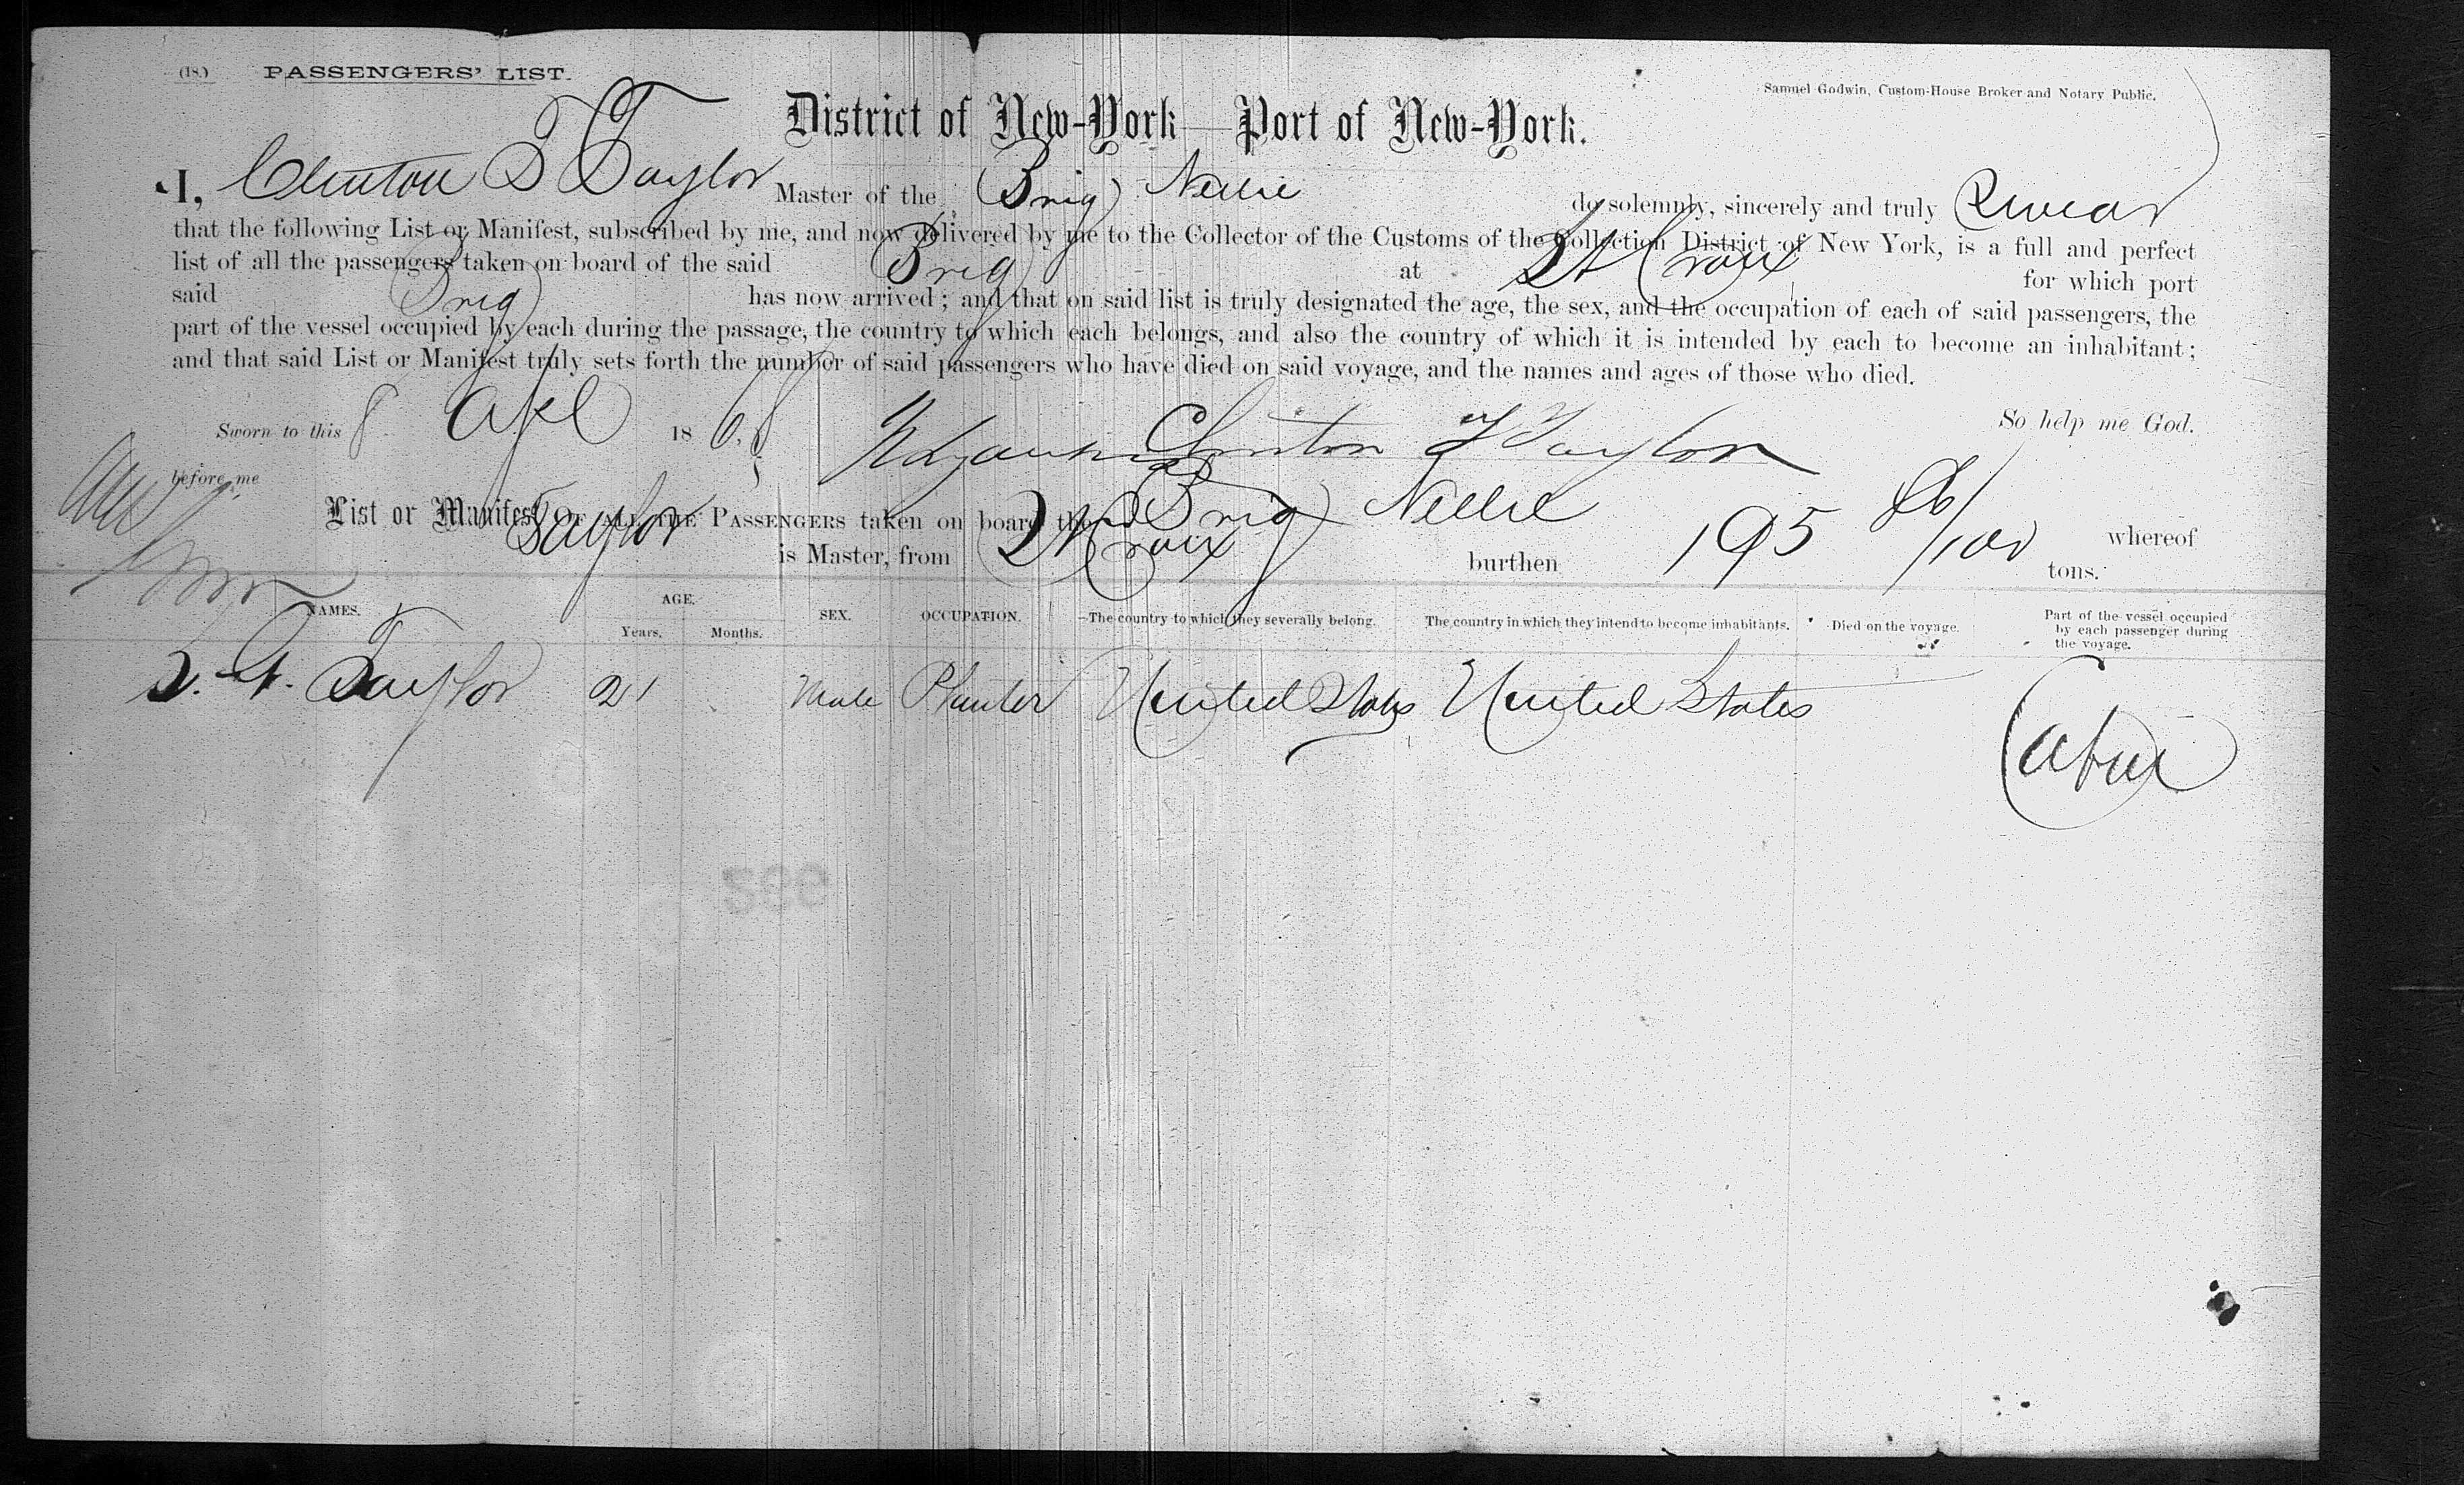 (18.) PASSENGERS' LIST.
Samuel Godwin, Custom-House Broker and Notary Public.
District of New-York—Port of New-York.
I, Clinton T Taylor Master of the Brig Nellie do solemnly, sincerely and truly Swear
that the following List or Manifest, subscribed by me, and now delivered by me to the Collector of the Customs of the Collection District of New York, is a full and perfect
list of all the passengers taken on board of the said Brig at St Croix for which port
said Brig has now arrived; and that on said list is truly designated the age, the sex, and the occupation of each of said passengers, the
part of the vessel occupied by each during the passage, the country to which each belongs, and also the country of which it is intended by each to become an inhabitant;
and that said List or Manifest truly sets forth the number of said passengers who have died on said voyage, and the names and ages of those who died.
So help me God.
Sworn to this 8 Apl 1868 Clinton T Taylor
before me
List or Manifest OF ALL THE PASSENGERS taken on board the Brig Nellie whereof
Taylor is Master, from St Croix burthen 195 /100 tons.
NAMES. AGE. Years. Months. SEX. OCCUPATION. The country to which they severally belong. The country in which they intend to become inhabitants. Died on the voyage. Part of the vessel occupied by each passenger during the voyage.
Taylor 21 Male Planter United States United States Cabin